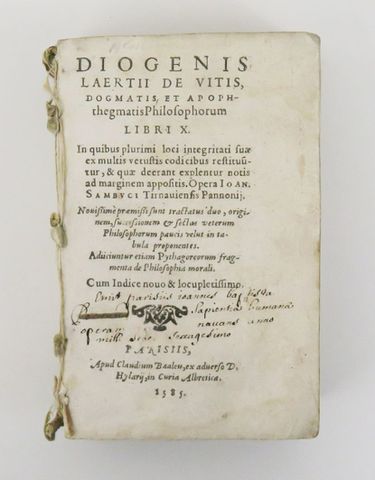 DIOGENIS
LAERTII DE VITIS,
DOGMATIS, ET APOPH-
thegmatis Philosophorum
LIBRI X.
In quibus plurimi loci integritati suæ
ex multis vetustis codicibus restituũ-
tur, & quæ deerant explentur notis
ad marginem appositis. Opera IOAN.
SAMBVCI Tirnauiensis Pannonij.
Nouissimè præmissi sunt tractatus duo, origi-
nem, successionem & sectas veterum
Philosophorum paucis velut in ta-
bula proponentes.
Adiiciuntur etiam Pythagoreorum frag-
menta de Philosophia morali.
Cum Indice nouo & locupletissimo.
Emit parisiis ioannes baptista
Sapientiæ humanæ
operam nauans anno
PARISIIS,
Apud Claudium Baaleu, ex aduerso D.
Hylarij, in Curia Albretica.
1585.